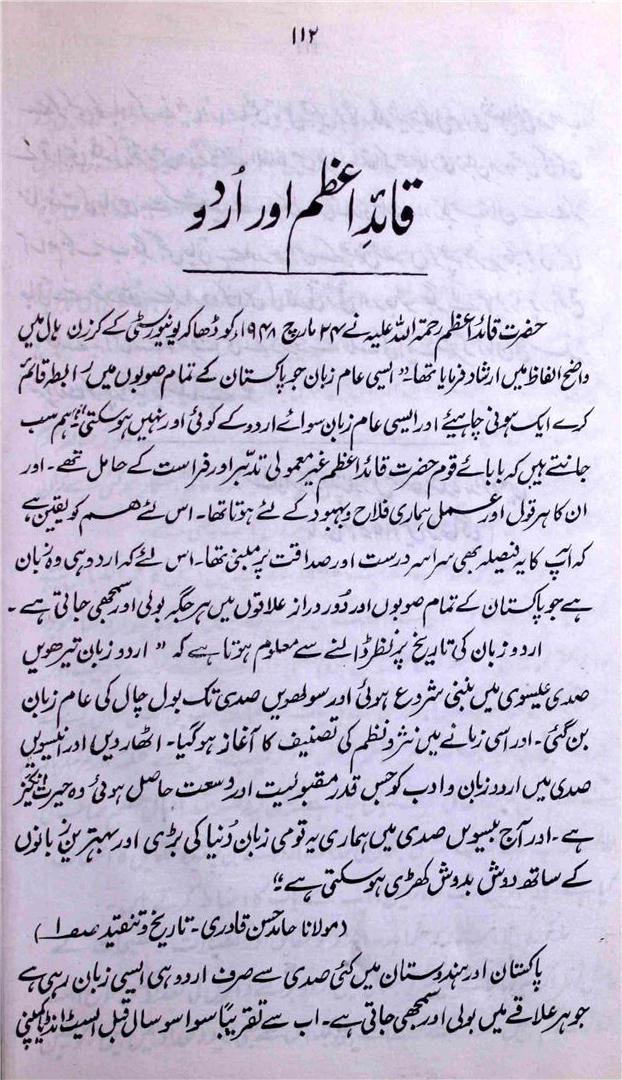 ۱۱۲
قائدِ اعظم اور اُردو
حضرت قائد اعظم رحمۃ اللہ علیہ نے ۲۴ مارچ ۱۹۴۸ء کو ڈھاکہ یونیورسٹی کے کرزن ہال میں
واضح الفاظ میں ارشاد فرمایا تھا۔" ایسی عام زبان جو پاکستان کے تمام صوبوں میں رابطہ قائم
کرے ایک ہونی چاہیئے اور ایسی عام زبان سوائے اردو کے کوئی اور نہیں ہو سکتی"۔ ہم سب
جانتے ہیں کہ بابائے قوم حضرت قائد اعظم غیر معمولی تدبّر اور فراست کے حامل تھے۔ اور
ان کا ہر قول اور عمل ہماری فلاح و بہبود کے لئے ہوتا تھا۔ اس لئے ہم کو یقین ہے
کہ آپ کا یہ فیصلہ بھی سراسر درست اور صداقت پر مبنی تھا۔ اس لئے کہ اردو ہی وہ زبان
ہے جو پاکستان کے تمام صوبوں اور دُور دراز علاقوں میں ہر جگہ بولی اور سمجھی جاتی ہے۔
اردو زبان کی تاریخ پر نظر ڈالنے سے معلوم ہوتا ہے کہ " اردو زبان تیرھویں
صدی عیسوی میں بننی شروع ہوئی اور سولھویں صدی تک بول چال کی عام زبان
بن گئی۔ اور اسی زمانے میں نثر و نظم کی تصنیف کا آغاز ہو گیا۔ اٹھارویں اور انیسویں
صدی میں اردو زبان و ادب کو جس قدر مقبولیت اور وسعت حاصل ہوئی وہ حیرت انگیز
ہے۔ اور آج بیسویں صدی میں ہماری یہ قومی زبان دُنیا کی بڑی اور بہترین زبانوں
کے ساتھ دوش بدوش کھڑی ہو سکتی ہے"۔
(مولانا حامد حسن قادری۔ تاریخ و تنقید صہ ۱)
پاکستان اور ہندوستان میں کئی صدی سے صرف اردو ہی ایسی زبان رہی ہے
جو ہر علاقے میں بولی اور سمجھی جاتی ہے۔ اب سے تقریباً سوا سو سال قبل ایسٹ انڈیا کمپنی